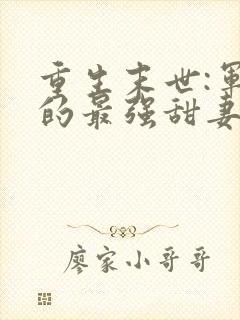 重生末世:軍
的最强甜妻
廖家小哥哥